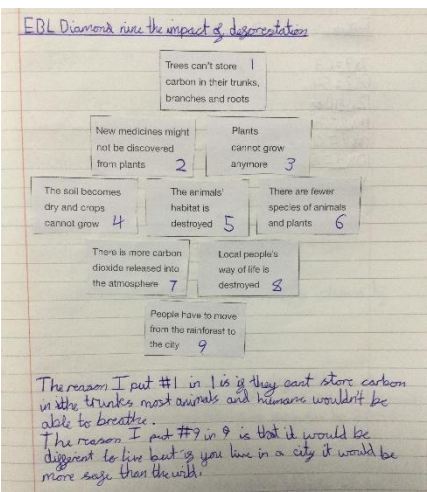 EBL Diamond nine the impact of deforestation
Trees can't store 1
carbon in their trunks,
branches and roots
New medicines might
not be discovered
from plants 2
Plants
cannot grow
anymore 3
The soil becomes
dry and crops
cannot grow 4
The animals'
habitat is
destroyed 5
There are fewer
species of animals
and plants 6
There is more carbon
dioxide released into
the atmosphere 7
Local people's
way of life is
destroyed 8
People have to move
from the rainforest to
the city 9
The reason I put #1 in 1 is if they cant store carbon
in the trunks most animals and humans wouldn't be
able to breathe.
The reason I put #9 in 9 is that it would be
different to live but if you live in a city it would be
more safe than the wild.